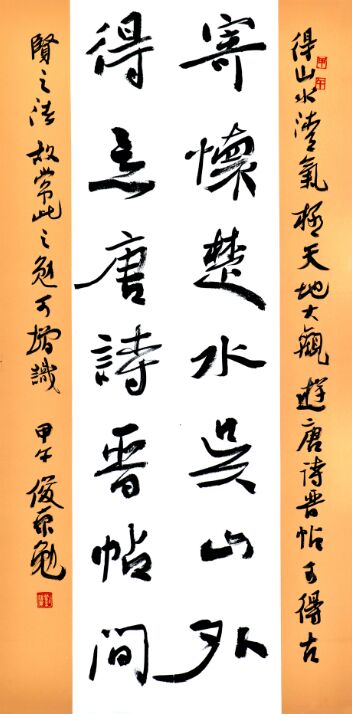 得山水清氣極天地大觀遊唐詩晉帖可得古
寄懷楚水吳山外
得意唐詩晉帖間
賢之法故常此之勉可增識 甲午俊勉
甲午